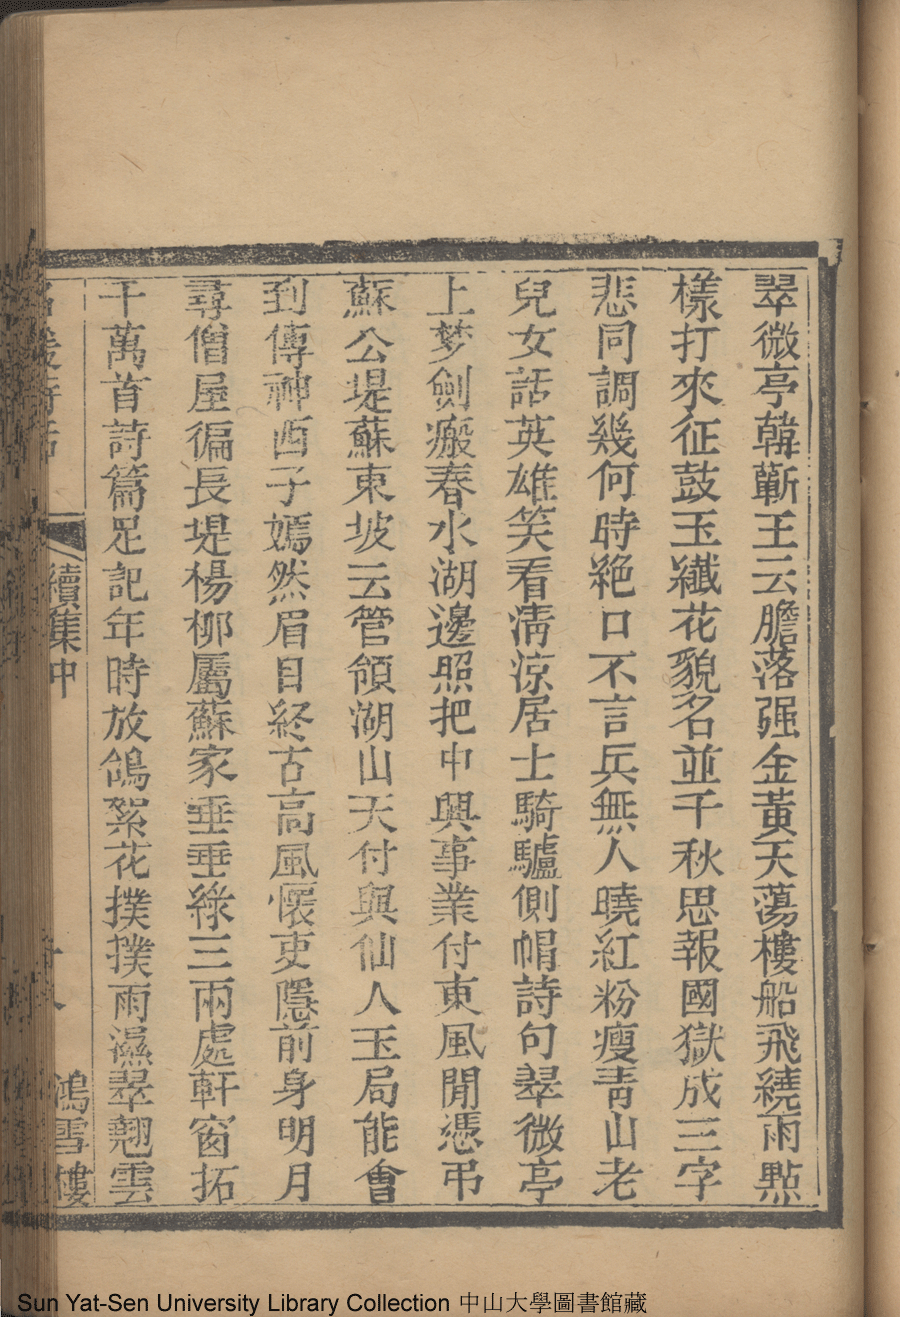 翠微亭韓蘄王云膽落强金黃天蕩樓船飛繞雨點
樣打來征鼓玉纖花貌名並千秋思報國獄成三字
悲同調幾何時絶口不言兵無人曉紅粉瘦青山老
兒女話英雄笑看淸涼居士騎驢側帽詩句翠微亭
上梦劍瘢春水湖邊照把中興事業付東風閒憑弔
蘇公堤蘇東坡云管領湖山天付與仙人玉局能會
到傳神酉子嫣然眉目終古高風懷吏隱前身明月
尋僧屋徧長堤楊柳屬蘇家垂垂綠三兩處軒窗拓
千萬首詩篇足記年時放鴿絮花撲撲雨濕翠翹雲
續集中
鴻雪樓
Sun Yat-Sen University Library Collection 中山大學圖書館藏